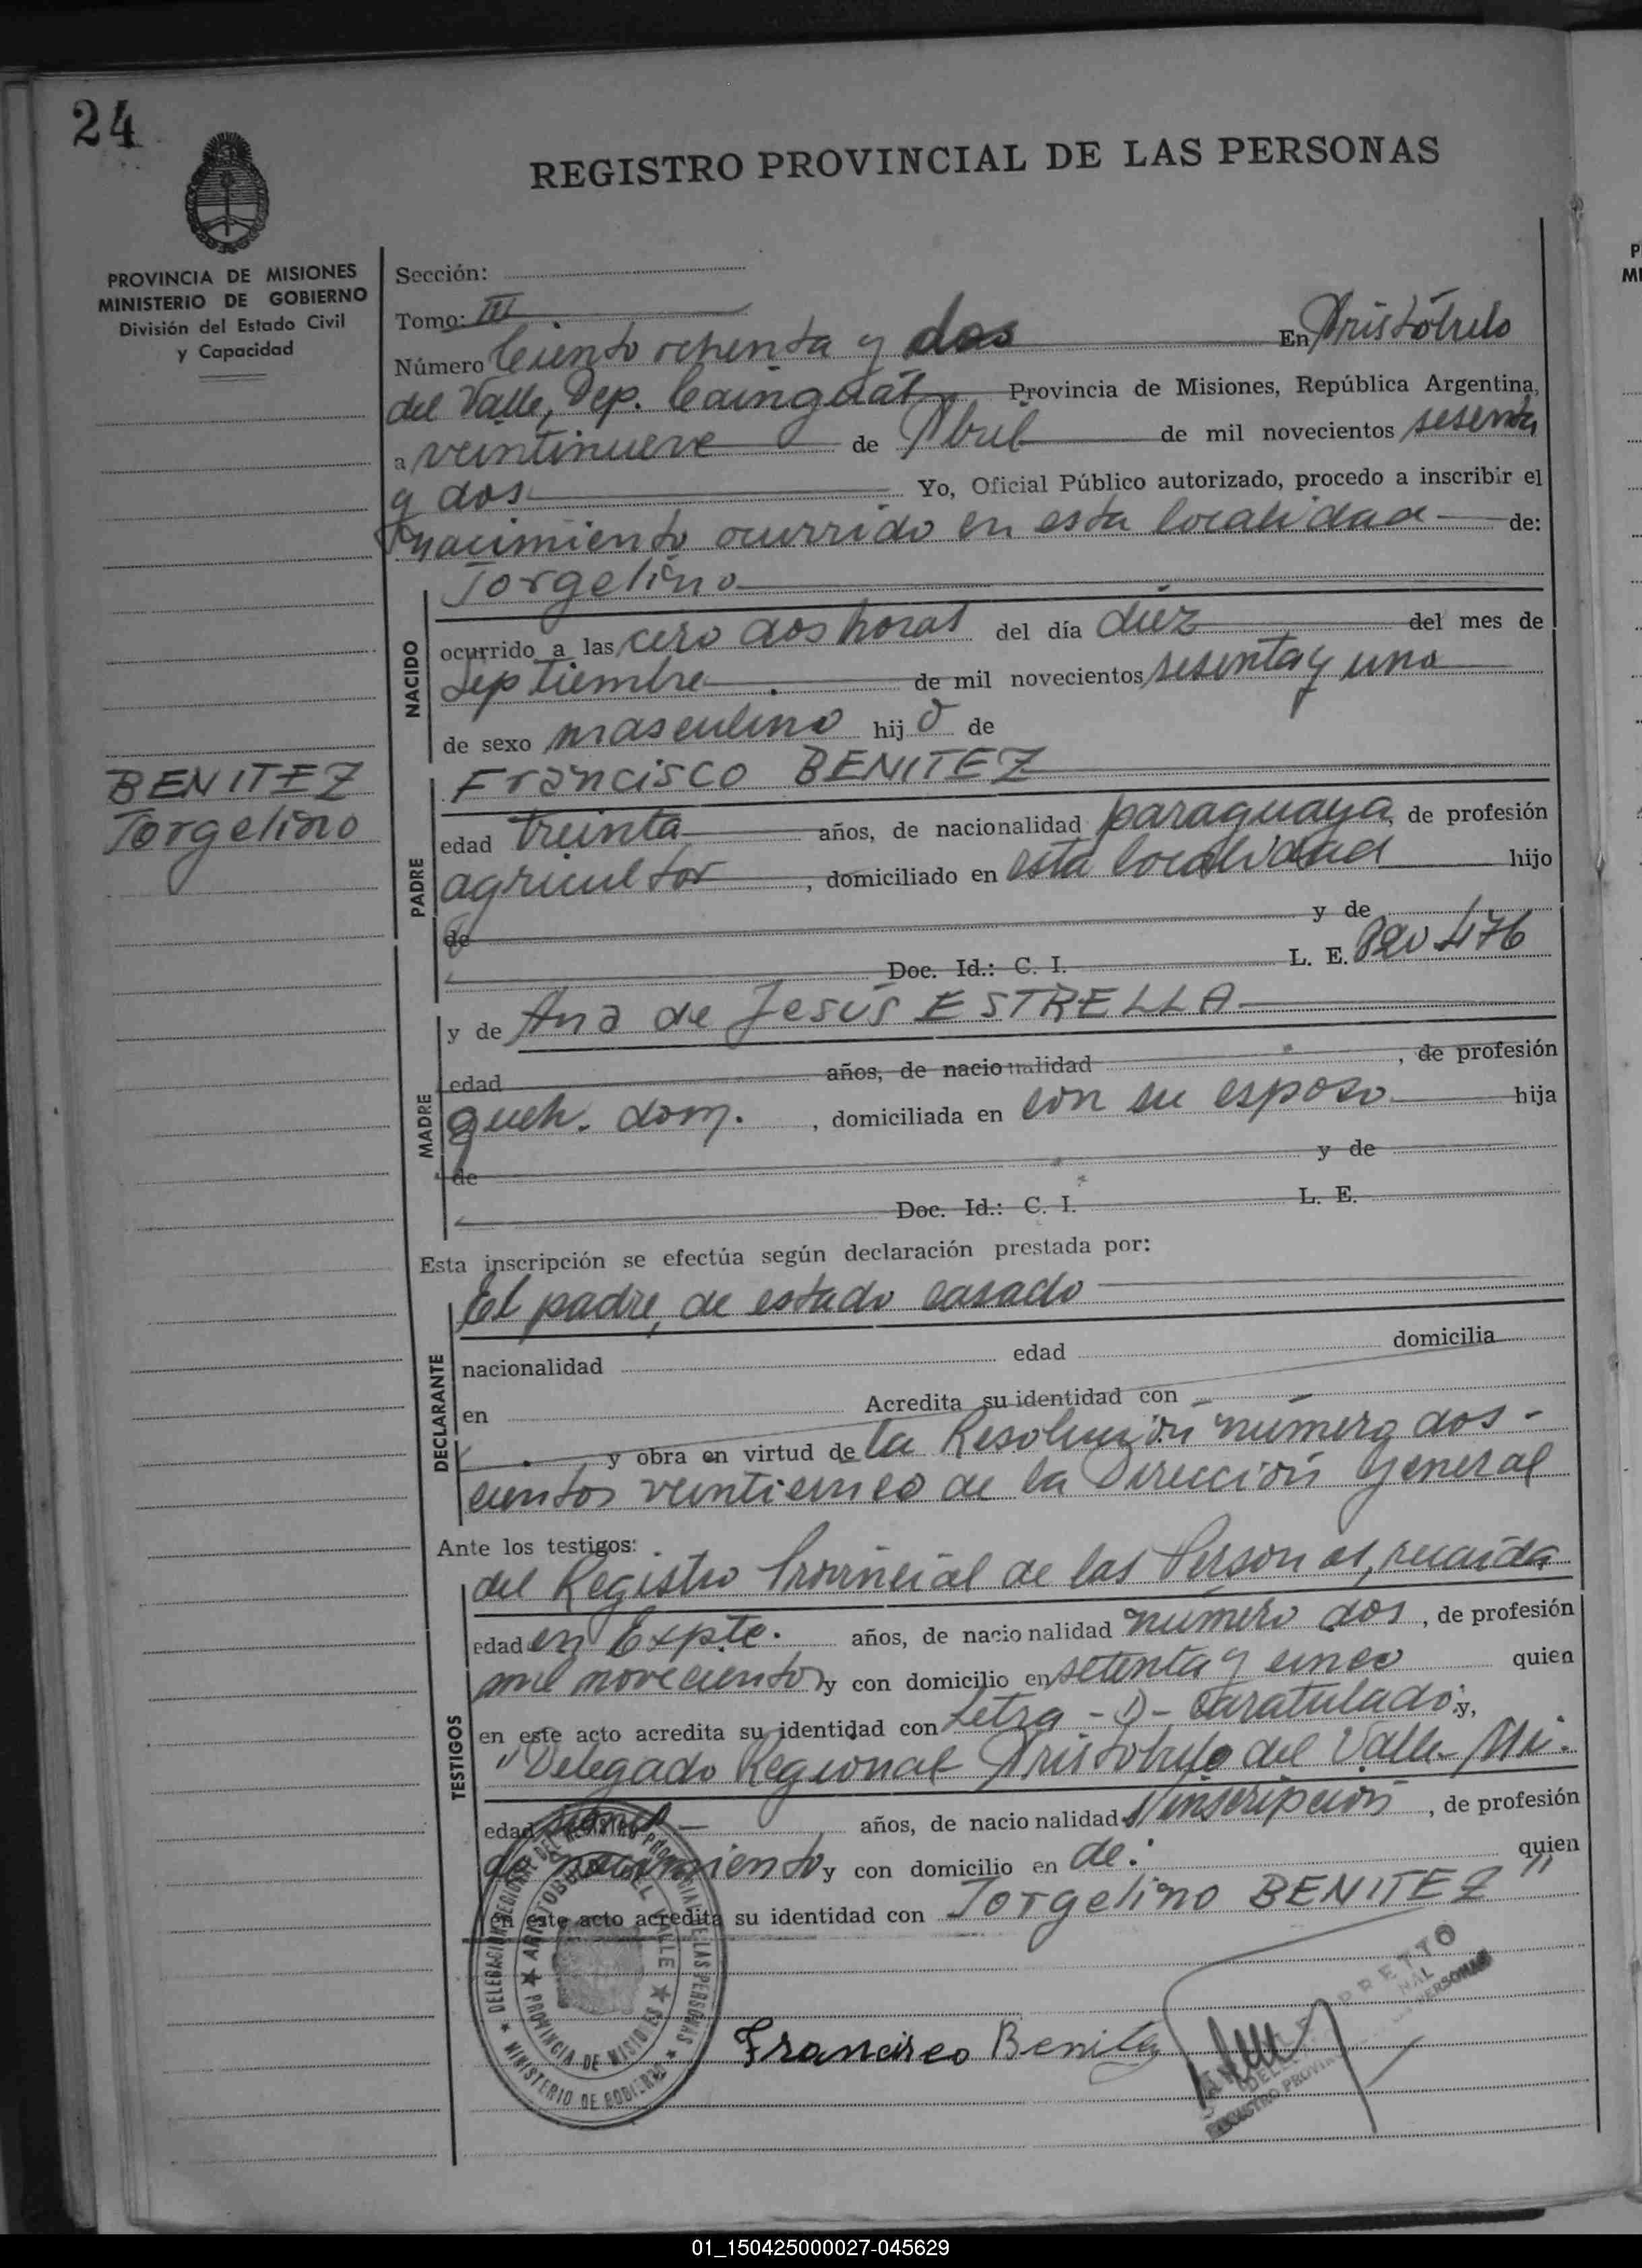 24
REGISTRO PROVINCIAL DE LAS PERSONAS
PROVINCIA DE MISIONES
MINISTERIO DE GOBIERNO
División del Estado Civil
y Capacidad
BENITEZ
Jorgelino
Sección:
Tomo: III
Número Ciento ochenta y dos En Aristóbulo
del Valle, Dep. Cainguás Provincia de Misiones, República Argentina,
a veintinueve de Abril de mil novecientos sesenta
y dos Yo, Oficial Público autorizado, procedo a inscribir el
nacimiento ocurrido en esta localidad de:
NACIDO
Jorgelino
ocurrido a las cero dos horas del día diez del mes de
Septiembre de mil novecientos sesenta y uno
de sexo masculino hijo de
PADRE
Francisco BENITEZ
edad treinta años, de nacionalidad paraguaya, de profesión
agricultor, domiciliado en esta localidad hijo
de y de
Doc. Id.: C. I. L. E. 820476
MADRE
y de Ana de Jesús ESTRELLA
edad años, de nacionalidad, de profesión
queh. dom., domiciliada en con su esposo hija
de y de
Doc. Id.: C. I. L. E.
Esta inscripción se efectúa según declaración prestada por:
DECLARANTE
El padre, de estado casado
nacionalidad edad domicilia
en Acredita su identidad con
y obra en virtud de la Resolución número dos-
cientos veinticinco de la Dirección General
Ante los testigos:
TESTIGOS
del Registro Provincial de las Personas, recaída
edad en Expte. años, de nacionalidad número dos, de profesión
mil novecientos y con domicilio en setenta y cinco quien
en este acto acredita su identidad con Letra -D- Caratulado: y,
"Delegado Regional Aristóbulo del Valle- Mi-
edad siones- años, de nacionalidad s/inscripción, de profesión
de nacimiento y con domicilio en de: quien
en este acto acredita su identidad con Jorgelino BENITEZ"
DELEGACION REGIONAL DEL REGISTRO PROVINCIAL DE LAS PERSONAS ★ MINISTERIO DE GOBIERNO ★
★ ARISTOBULO DEL VALLE ★ PROVINCIA DE MISIONES
Francisco Benitez
REGISTRO PROVIN PERSONAS
P
MI
01_150425000027-045629